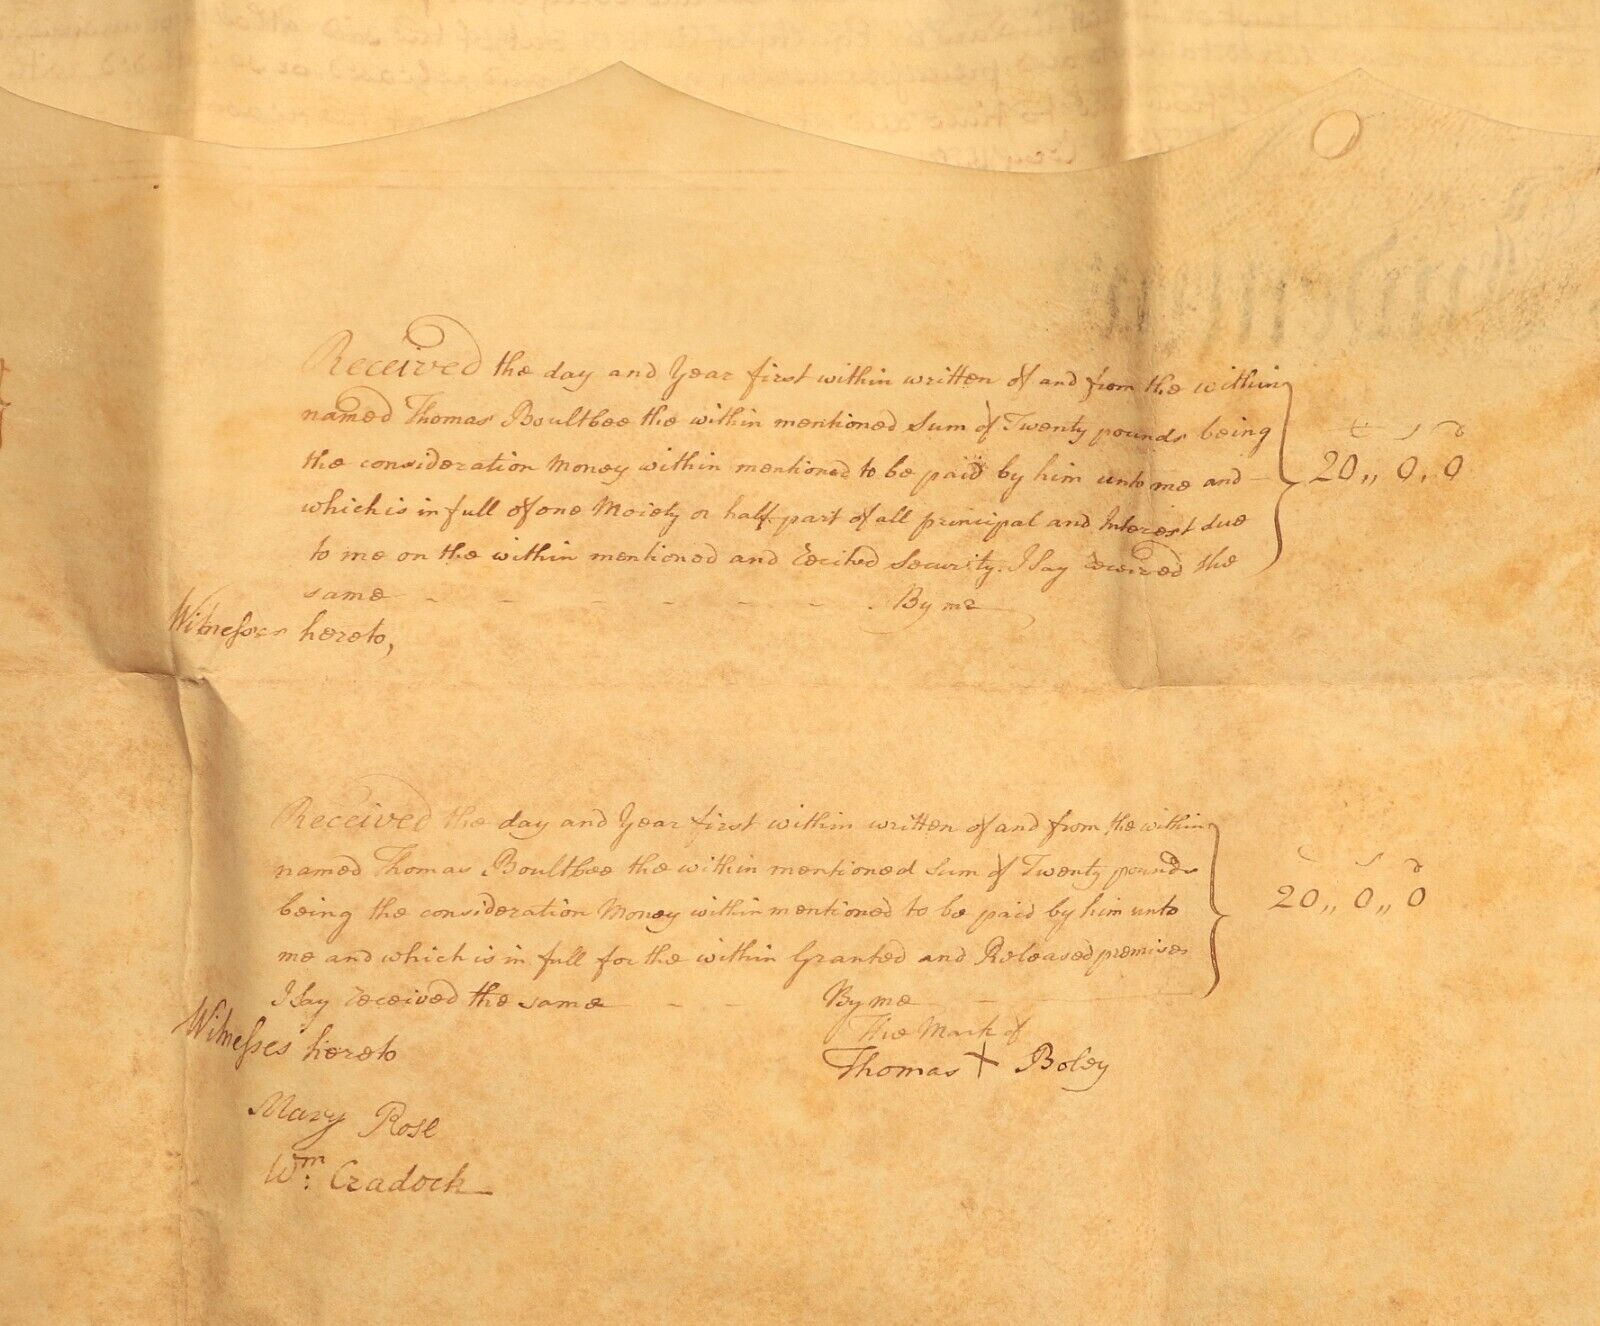 Received the day and Year first within written of and from the within
named Thomas Boultbee the within mentioned Sum of Twenty pounds being
the consideration Money within mentioned to be paid by him unto me and
£ s d
20,, 0,, 0
which is in full of one Moiety or half part of all principal and Interest due
to me on the within mentioned and recited Security. I Say received the
same - - - - - - - By me
Witnesses hereto,
Received the day and Year first within written of and from the within
named Thomas Boultbee the within mentioned Sum of Twenty pounds
being the consideration Money within mentioned to be paid by him unto
£ s d
20,, 0,, 0
me and which is in full for the within Granted and Released premises
I Say received the same - - By me
The Mark of
Witnesses hereto
Thomas X Boley
Mary Rose
Wm: Cradock